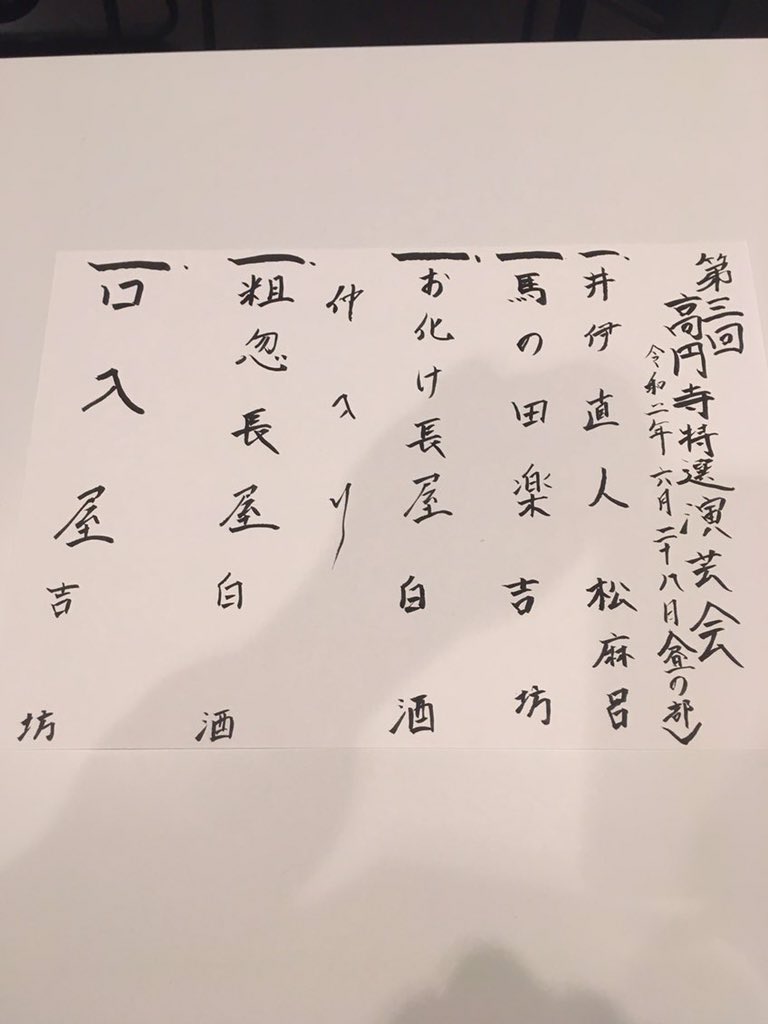 第三回
高円寺特選演芸会
令和二年 六月二十八日 昼の部〉
一、井伊直人 松麻呂
一、馬の田楽 吉坊
一、お化け長屋 白酒
仲入り
一、粗忽長屋 白酒
一、口入屋 吉坊